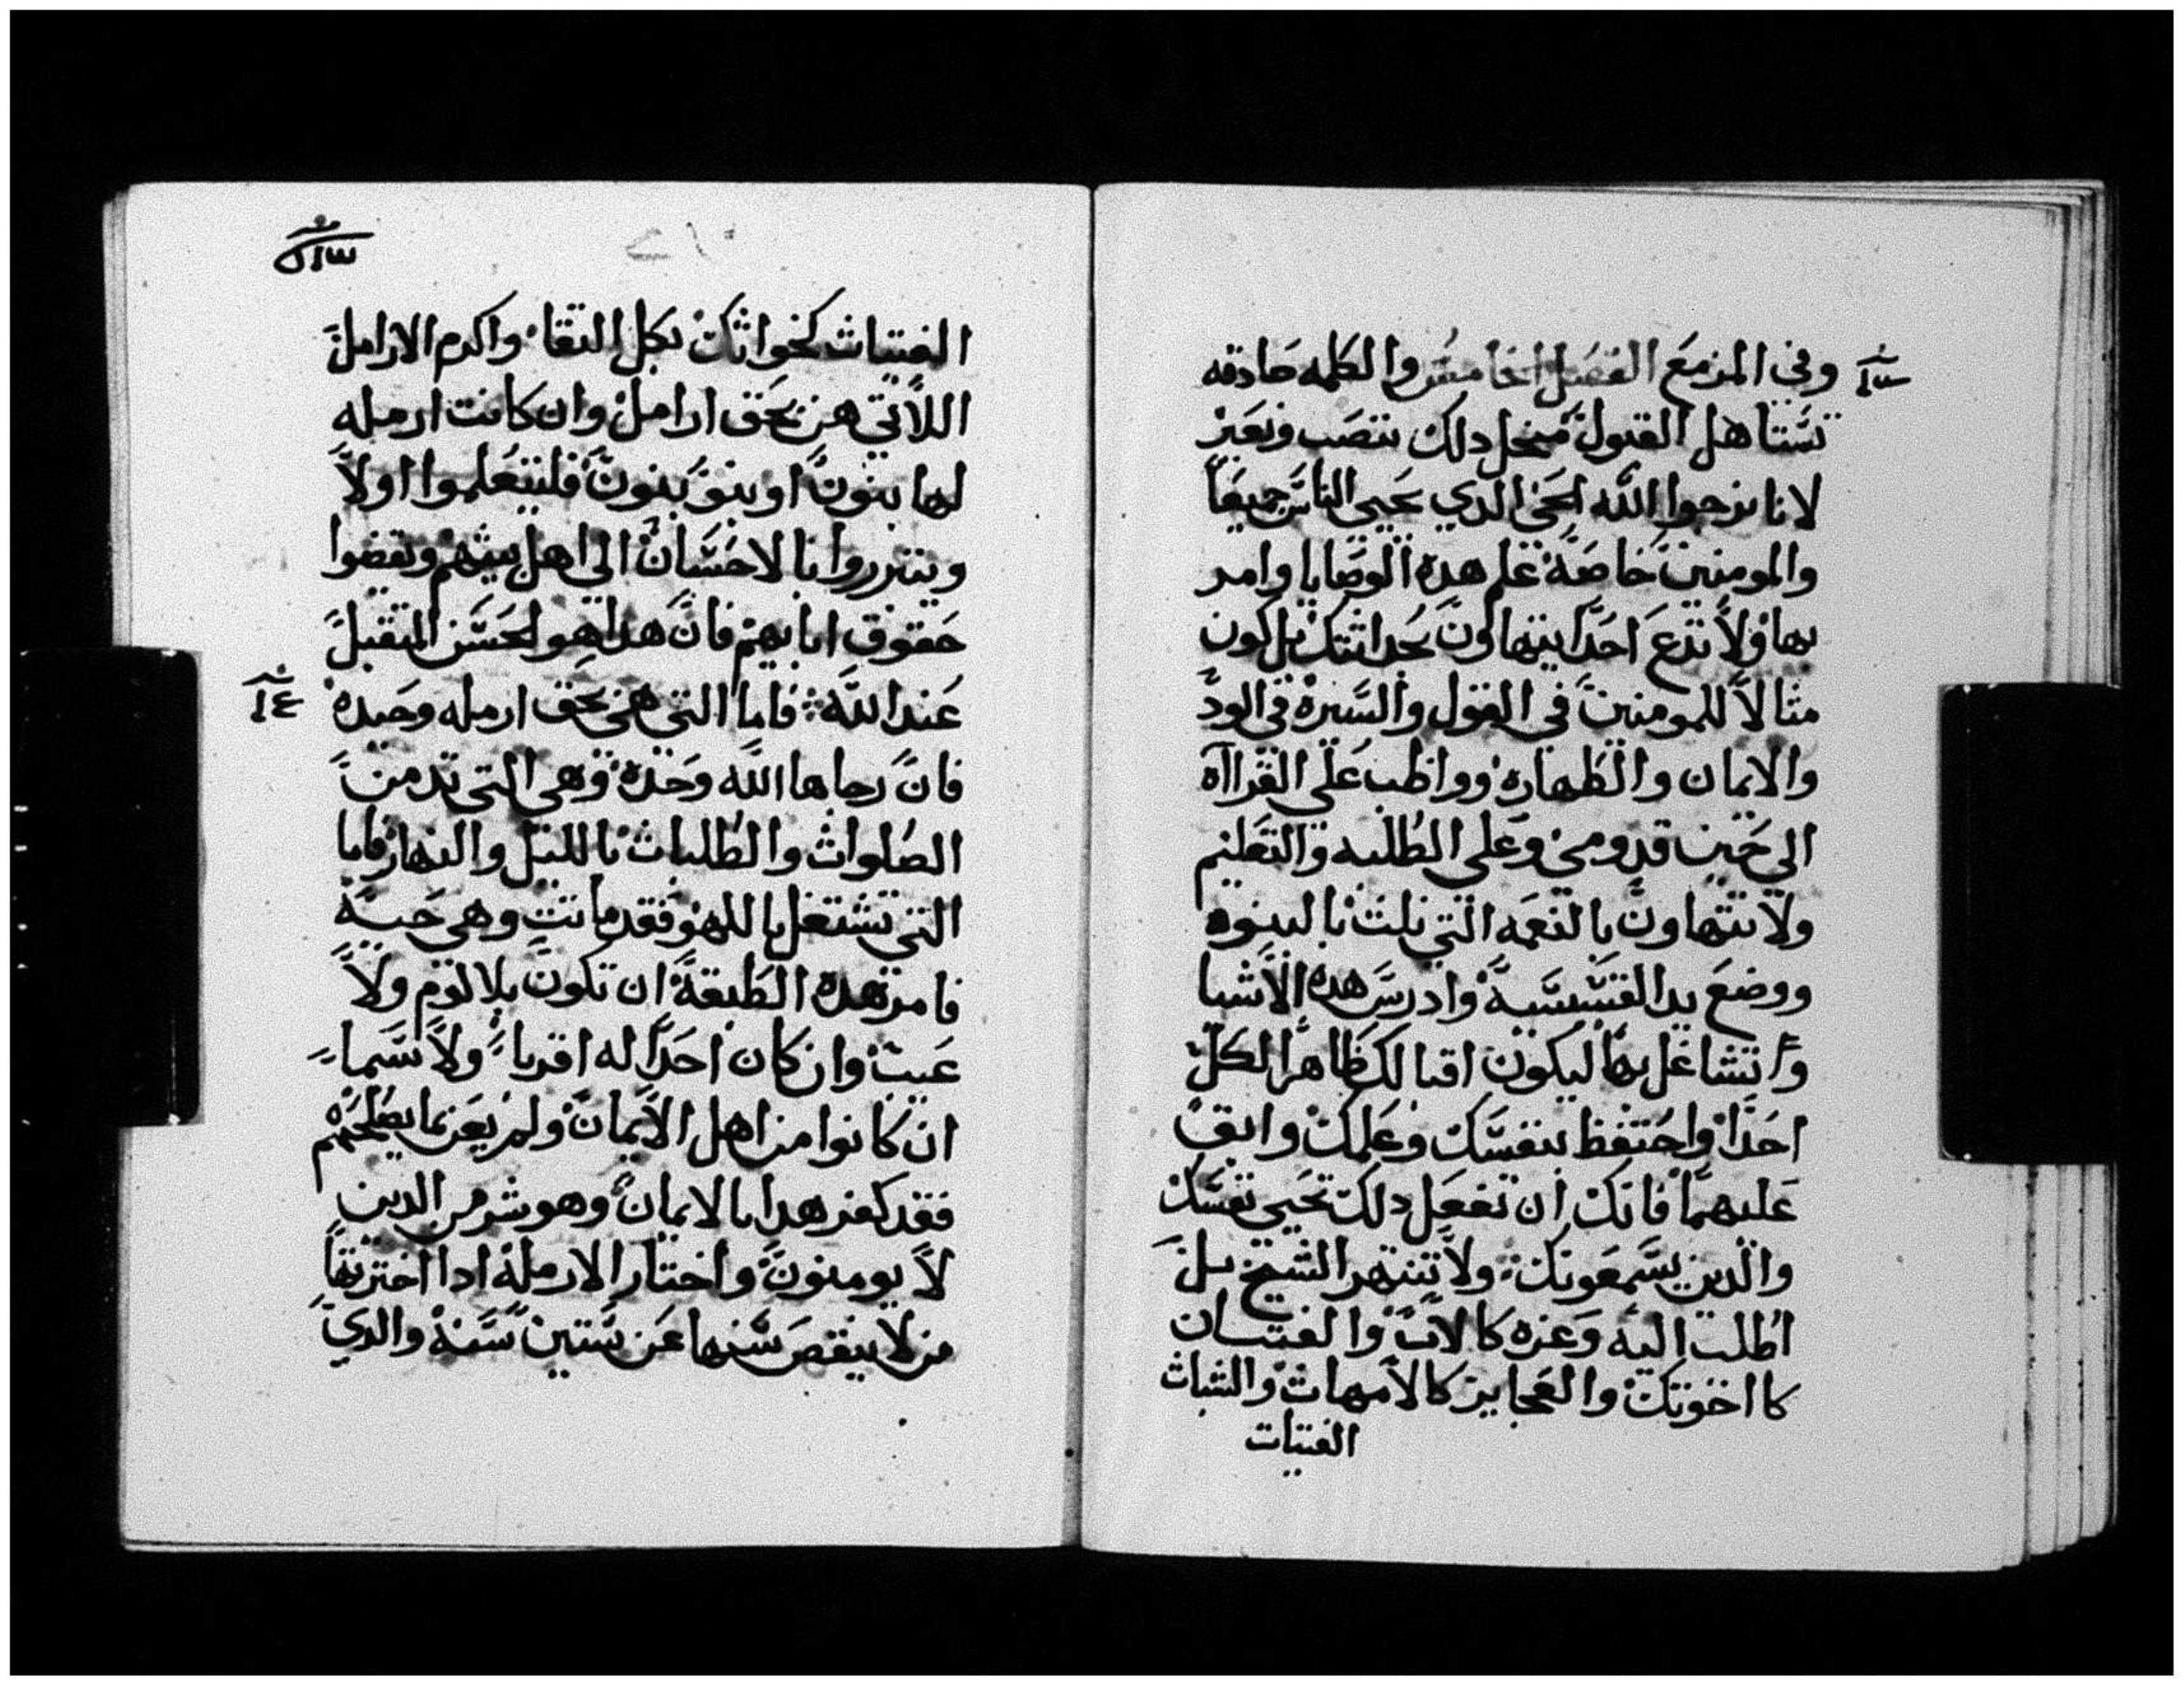 وفي المزمع الفصل الخامس والكلمه صادقه
تستاهل القبول فمنجل دلك ننصب ونعير
لانا نرجوا الله الحي الدي يحيي الناس جميعا
والمومنين خاصة علم هده الوصايا وامر
بها ولا تدع احدا يتهاون بحداثتك بل كون
مثالا للمومنين في القول والسيرة في الود
والايمان والطهارة وواظب علي القراآه
الي حين قدومي وعلي الطلبه والتعليم
ولا تتهاون بالنعمه التي نلت بالنبوه
ووضع يد القسيسية وادرس هده الاشيا
واتشاغل بها ليكون اقبالك ظاهرا لكل
احدا واحتفظ بنفسك وعلمك وابق
عليهما فانك ان تفعل دلك تحيي نفسك
والدين يسمعونك ولا تنتهر الشيخ بل
اطلب اليه وعزه كالاب والفتيان
كااخوتك والعجايز كالامهات والشبات
الفتيات
الفتيات كخواتك بكل النقا واكرم الارامل
اللاتي هن بحق ارامل وان كانت ارمله
لها بنون او بنو بنون فليتعلموا اولا
ويتبرروا بالاحسان الي اهل بيتهم ويقضوا
حقوق ابايهم فان هدا هو الحسن المتقبل
عند الله فاما التي هي بحق ارمله وحيده
١٤
فان رجاها الله وحده وهي التي تدمن
الصلوات والطلبات بالليل والنهار فاما
التي تشتغل باللهو فقد ماتت وهي حيه
فامر هده الطبقة ان تكون بلا لوم ولا
عيب وان كان احدا له اقربا ولا سيما
ان كانوا من اهل الايمان ولم يعن بما يصلحهم
فقد كفر هدا بالايمان وهو شر من الدين
لا يومنون واختار الارملة ادا اخترتها
من لا ينقص سنها عن ستين سنة والدي